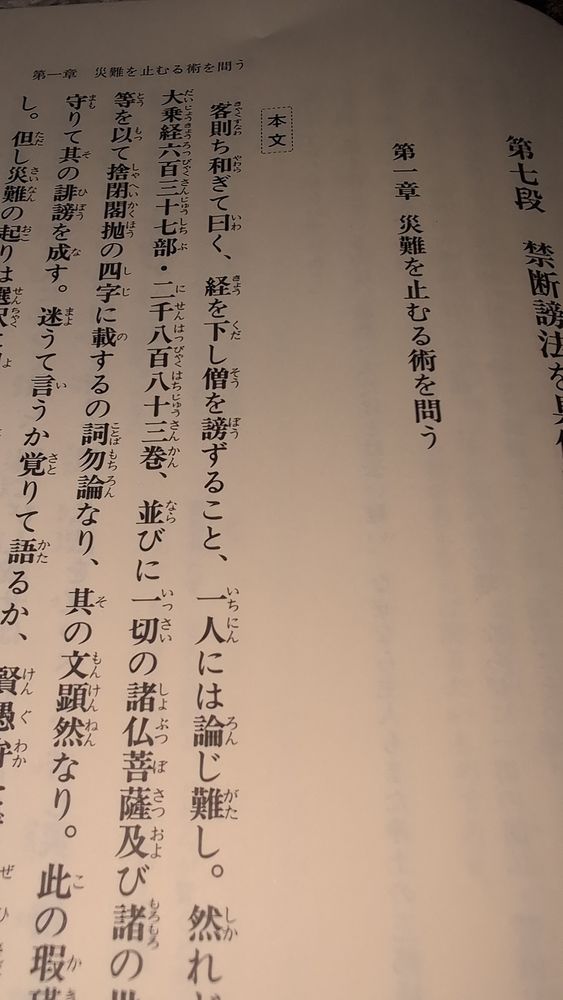 第七段　禁断謗法を
第一章　災難を止むる術を問う
第一章　災難を止むる術を問う
本文
客則ち和ぎて曰く、経を下し僧を謗ずること、一人には論じ難し。然れ
大乗経六百三十七部・二千八百八十三巻、並びに一切の諸仏菩薩及び諸の
等を以て捨閉閣抛の四字に載するの詞勿論なり、其の文顕然なり。此の瑕
守りて其の誹謗を成す。迷うて言うか覚りて語るか、賢愚
し。但し災難の起りは選択